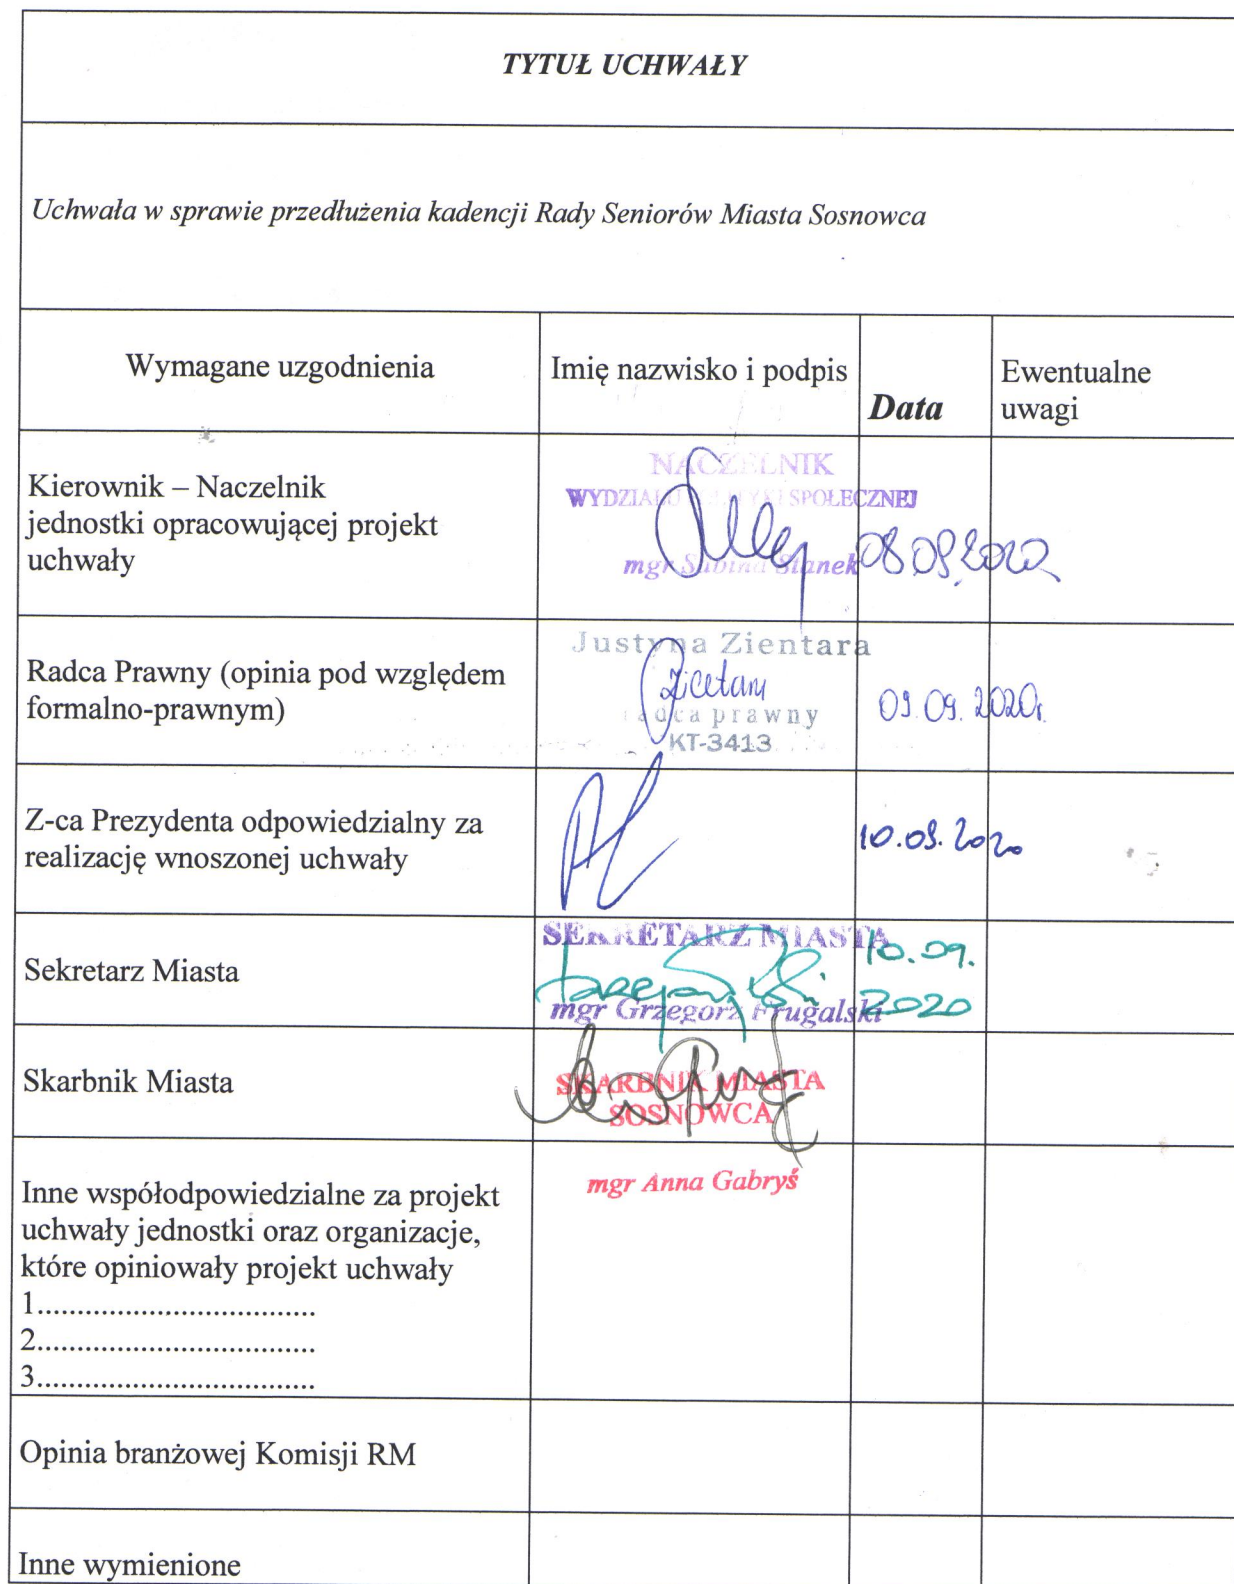 TYTUŁ UCHWAŁY
Uchwała w sprawie przedłużenia kadencji Rady Seniorów Miasta Sosnowca
Wymagane uzgodnienia
Imię nazwisko i podpis
Data
Ewentualne
uwagi
Kierownik – Naczelnik
jednostki opracowującej projekt
uchwały
NACZELNIK
WYDZIAŁU POLITYKI SPOŁECZNEJ
mgr Sabina Stanek
08.09.2020
Radca Prawny (opinia pod względem
formalno-prawnym)
Justyna Zientara
radca prawny
KT-3413
09.09.2020r.
Z-ca Prezydenta odpowiedzialny za
realizację wnoszonej uchwały
10.09.2020
Sekretarz Miasta
SEKRETARZ MIASTA
mgr Grzegorz Frugalski
10.09.
2020
Skarbnik Miasta
SKARBNIK MIASTA
SOSNOWCA
mgr Anna Gabryś
Inne współodpowiedzialne za projekt
uchwały jednostki oraz organizacje,
które opiniowały projekt uchwały
1..................................
2..................................
3..................................
Opinia branżowej Komisji RM
Inne wymienione